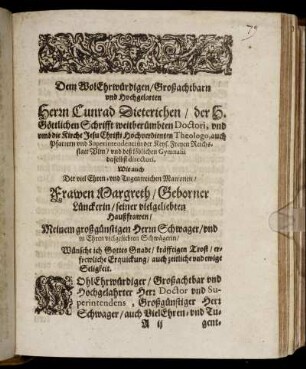 Dem WolEhrwürdigen/ Großachtbarn
und Hochgelarten
Herrn Cunrad Dieterichen/ der H.
Göttlichen Schrifft weitberümbten Doctori, vnd
vmb die Kirche Jesu Christi Hochverdienten Theologo, auch
Pfarrern vnd Superintendenten der Keys. Freyen Reichs-
statt Vlm/ vnd deß löblichen Gymnasii
daselbst directori.
Wie auch
Der viel Ehren- vnd Tugentreichen Matronen/
Frawen Margreth/ Geborner
Lünckerin/ seiner vielgeliebten
Haußfrawen/
Meinem großgünstigen Herrn Schwager/ vnd
in Ehren vielgeliebten Schwägerin/
Wünsche ich Gottes Gnade/ kräfftigen Trost/ er-
frewliche Erquickung/ auch zeitliche vnd ewige
Seligkeit.
WOhlEhrwürdiger/ Großachtbar vnd
Hochgelahrter Herr Doctor vnd Su-
perintendens, Großgünstiger Herr
Schwager/ auch Viel Ehren- vnd Tu-
A ij
gent-